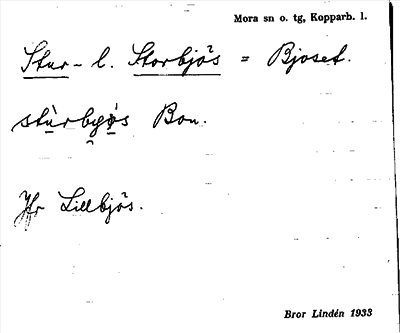 Mora sn o. tg, Kopparb. l.
Stur- l. Storbjös = Bjoset.
stùrbyøs Bon.
Jfr Lillbjös.
Bror Lindén 1933